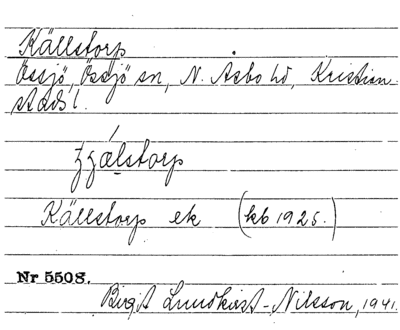 Källstorp
Össjö, Össjö sn, N. Åsbo hd, Kristian-
stads l.
Källstorp ek (kb 1925.)
Nr 5508.
Birgit Lundkvist-Nilsson, 1941.